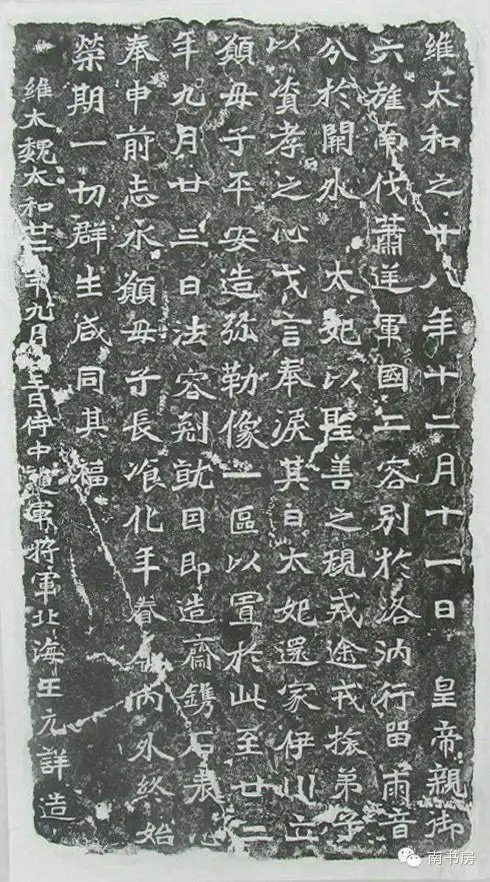 維太和之十八年十二月十一日 皇帝親御
六旌南伐蕭逆軍國二容別於洛汭行留兩音
分於闕外 太妃以聖善之規戒途戎旅弟子
以資孝之心戈言奉淚其日太妃還家伊川立
願母子平安造弥勒像一區以置於此至廿二
年九月廿三日法容剋就因即造齋鐫石表心
奉申前志永願母子長飡化年眷 內外終始
榮期一切群生咸同其福
維大魏太和廿二年九月廿三日侍中護軍將軍北海王元詳造
南书房